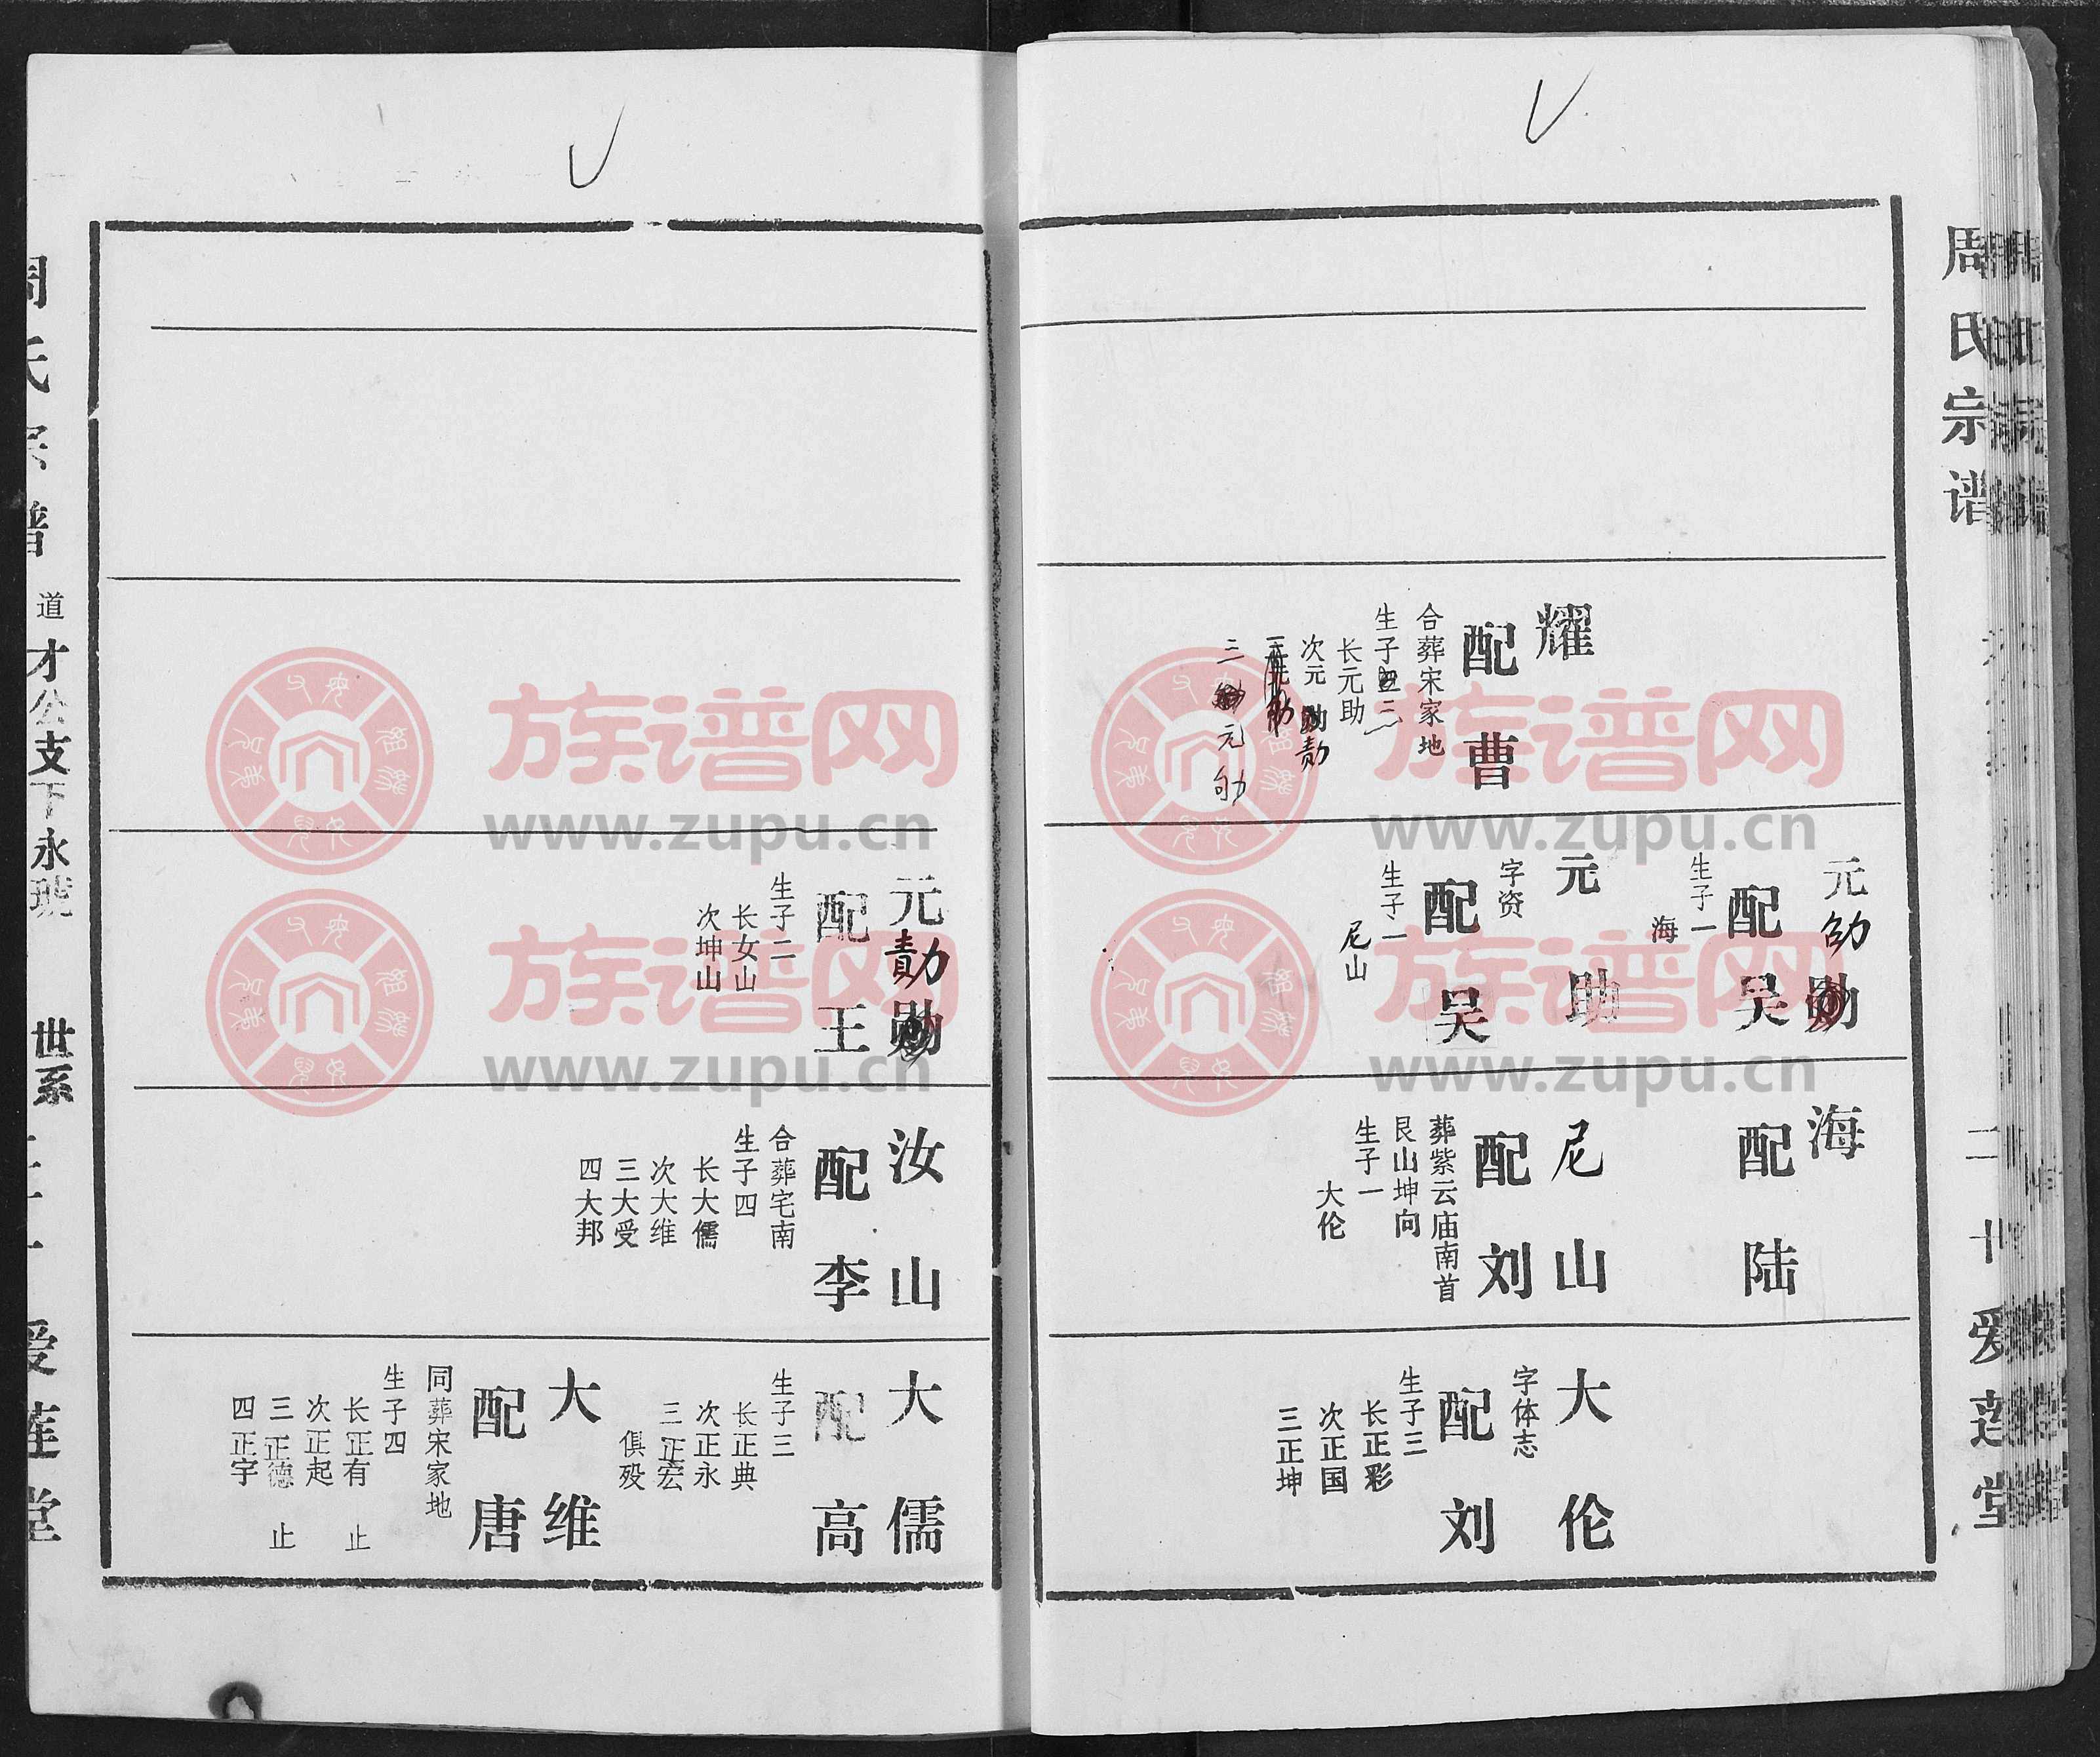 周氏宗谱
二
世
爱莲堂
耀
配曹
合葬宋家地
生子三
长元助
次元勣
三元劬
元劭
配吴
生子一
海
元助
字资
配吴
生子一
尼山
海
配陆
尼山
配刘
葬紫云庙南首
艮山坤向
生子一
大伦
大伦
字体志
配刘
生子三
长正彩
次正国
三正坤
元勣
配王
生子二
长女山
次坤山
汝山
配李
合葬宅南
生子四
长大儒
次大维
三大受
四大邦
大儒
配高
生子三
长正典
次正永
三正宏
俱殁
大维
配唐
同葬宋家地
生子四
长正有 止
次正起
三正德 止
四正宇
周氏宗谱
道才公支下永琥
世系
爱莲堂
族谱网
www.zupu.cn
族谱网
www.zupu.cn
族谱网
www.zupu.cn
族谱网
www.zupu.cn